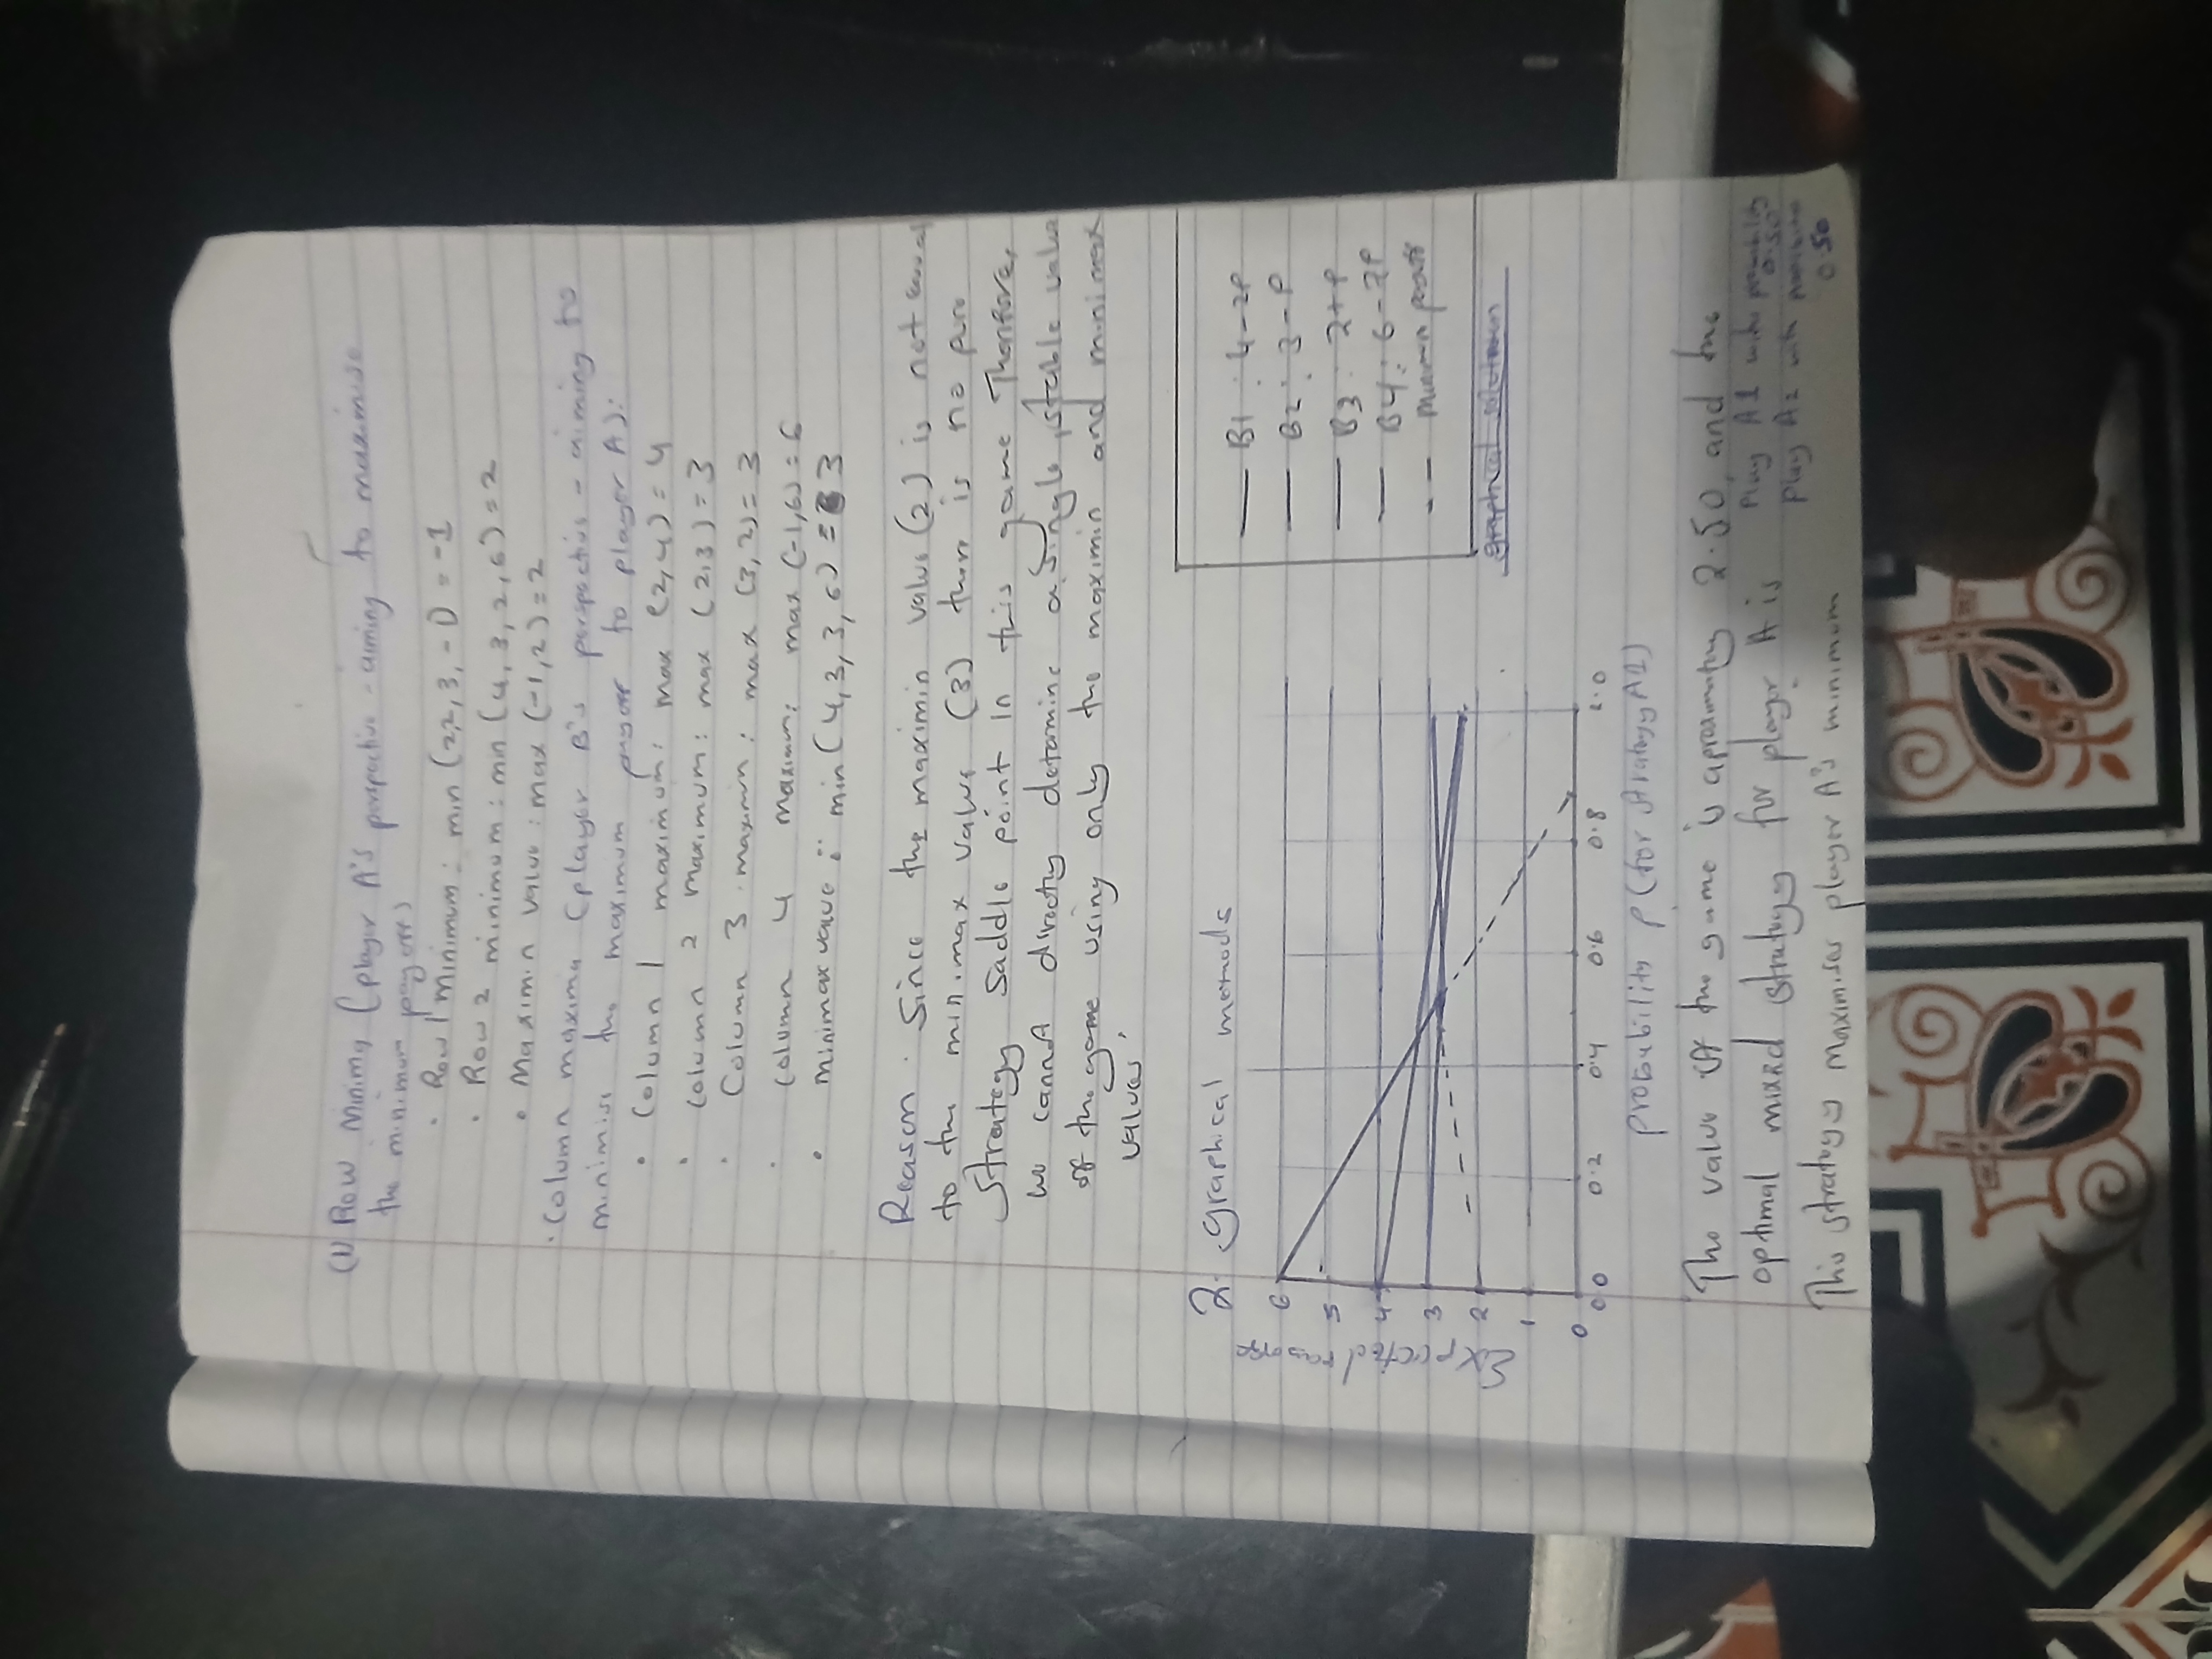 (1) Row Minima (player A's perspective - aiming to maximise
the minimum payoff)
• Row 1 minimum: min (2,2, 3, -1) = -1
• Row 2 minimum: min (4, 3, 2, 6) = 2
• Maximin value: max (-1,2) = 2
• Column maxima (player B's perspective - aiming to
minimise the maximum payoff to player A):
• Column 1 maximum: max (2,4) = 4
• column 2 maximum: max (2,3) = 3
• Column 3 maximum: max (3,2) = 3
• column 4 maximum: max (-1,6) = 6
• minimax value: min (4, 3, 3, 6) = 3
Reason. Since the maximin value (2) is not equal
to the minimax value (3) there is no pure
Strategy saddle point in this game Therefore,
we cannot directly determine a single, stable value
of the game using only the maximin and minimax
values.
2. graphical methods
Expected
6
5
4
3
2
1
0
0.0 0.2 0.4 0.6 0.8 1.0
probability P (for strategy A1)
B1 : 4-2P
B2 : 3-P
B3 : 2+P
B4 : 6-7P
minimum payoff
graphical solution
The value of the game is aproximately 2.50, and the
optimal mixed strategy for player A is
Play A1 with probability
0.50
Play A2 with probability
0.50
This strategy maximises player A's minimum